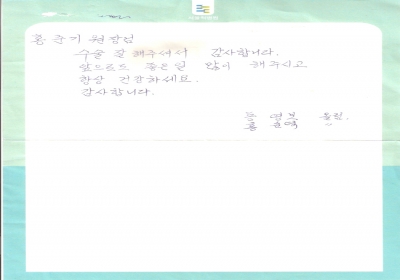 홍준기 원장님
수술 잘 해주셔서 감사합니다.
앞으로도 좋은일 많이 해주시고
항상 건강하세요.
감사합니다.
올림.
"